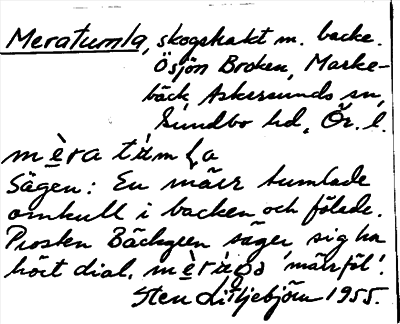 Meratumla, skogstrakt m. backe.
Ösjön Broken, Marke-
bäck, Askersunds sn,
Sundbo hd, Ör. l.
mèra tum la
Sägen: En märr tumlade
omkull i backen och fölade.
Prosten Bäckgren säger sig ha
hört dial. 'märrföl'.
Sten Liljebjörn 1955.